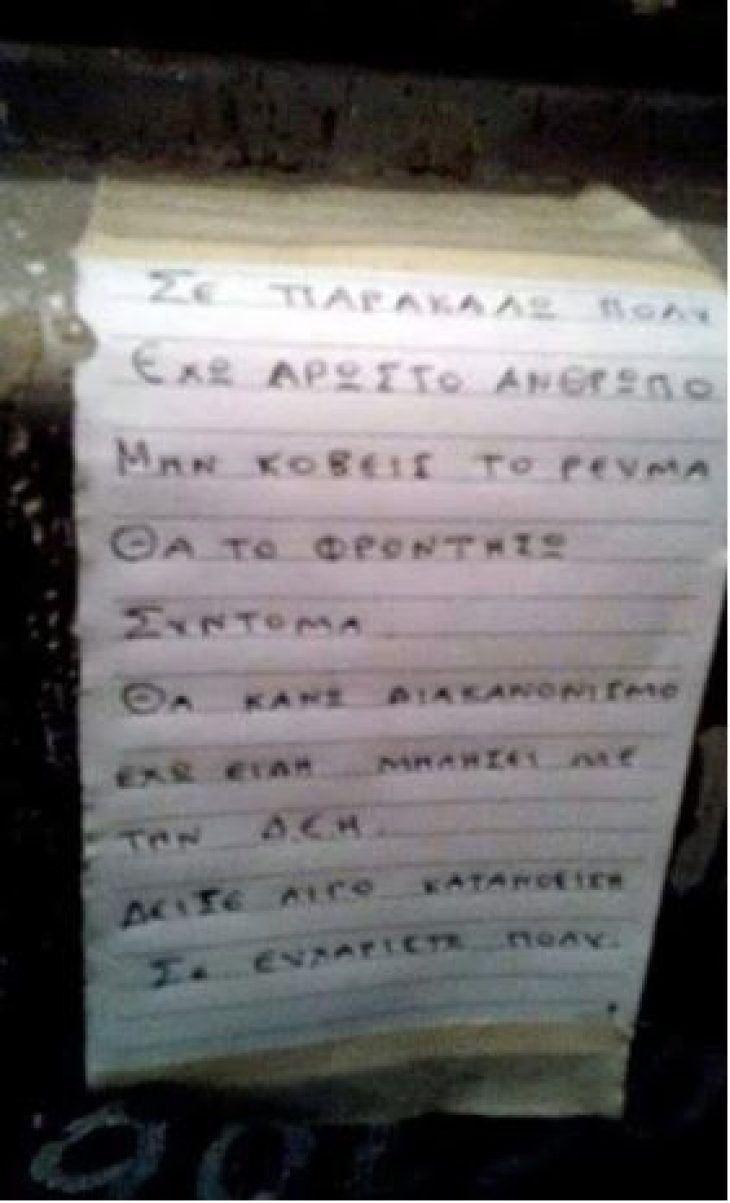 Σε ΠΑΡΑΚΑΛΩ ΠΟΛΥ
ΕΧΩ ΑΡΩΣΤΟ ΑΝΘΡΩΠΟ
ΜΗΝ ΚΟΒΕΙΣ ΤΟ ΡΕΥΜΑ
ΘΑ ΤΟ ΦΡΟΝΤΗΣΩ
ΣΥΝΤΟΜΑ
ΘΑ ΚΑΝΩ ΔΙΑΚΑΝΟΝΙΣΜΟ
ΕΧΩ ΕΙΔΗ ΜΗΛΗΣΕΙ ΜΕ
ΤΗΝ Δ.Ε.Η.
ΔΕΙΞΕ ΛΙΓΟ ΚΑΤΑΝΟΕΙΣΗ
Σε ΕΥΧΑΡΙΣΤΩ ΠΟΛΥ.